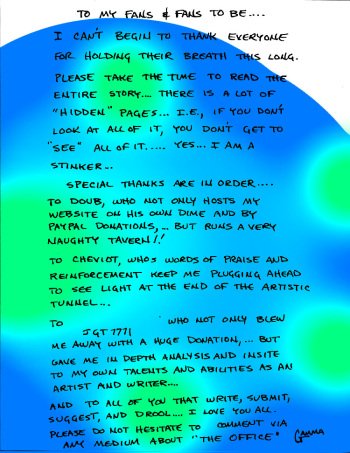 TO MY FANS & FANS TO BE....
I CAN'T BEGIN TO THANK EVERYONE
FOR HOLDING THEIR BREATH THIS LONG.
PLEASE TAKE THE TIME TO READ THE
ENTIRE STORY.... THERE IS A LOT OF
"HIDDEN" PAGES... I.E., IF YOU DON'T
LOOK AT ALL OF IT, YOU DON'T GET TO
"SEE" ALL OF IT..... YES... I AM A
STINKER...
SPECIAL THANKS ARE IN ORDER....
TO DOUB, WHO NOT ONLY HOSTS MY
WEBSITE ON HIS OWN DIME AND BY
PAYPAL DONATIONS,... BUT RUNS A VERY
NAUGHTY TAVERN!!
TO CHEVIOT, WHOS WORDS OF PRAISE AND
REINFORCEMENT KEEP ME PLUGGING AHEAD
TO SEE LIGHT AT THE END OF THE ARTISTIC
TUNNEL...
TO JGT7771 WHO NOT ONLY BLEW
ME AWAY WITH A HUGE DONATION,... BUT
GAVE ME IN DEPTH ANALYSIS AND INSITE
TO MY OWN TALENTS AND ABILITIES AS AN
ARTIST AND WRITER....
AND TO ALL OF YOU THAT WRITE, SUBMIT,
SUGGEST, AND DROOL.... I LOVE YOU ALL.
PLEASE DO NOT HESITATE TO COMMENT VIA
ANY MEDIUM ABOUT "THE OFFICE"